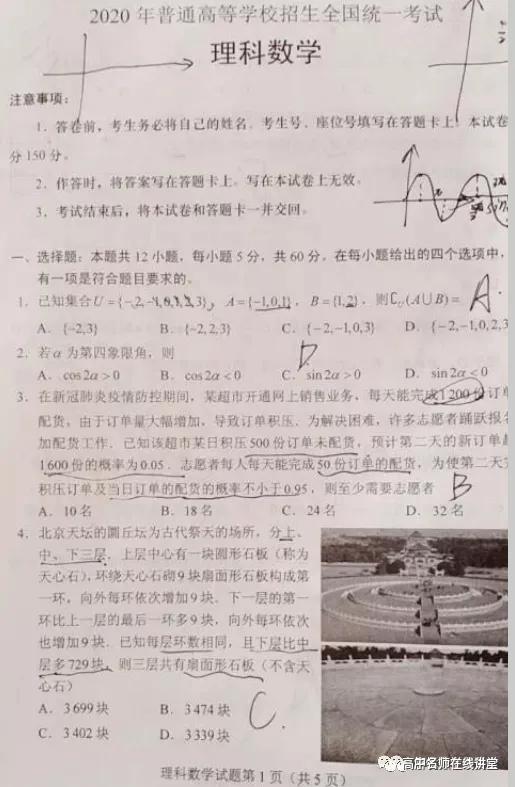 2020年普通高等学校招生全国统一考试
理科数学
注意事项：
1．答卷前，考生务必将自己的姓名、考生号、座位号填写在答题卡上，本试卷
分150分。
2．作答时，将答案写在答题卡上。写在本试卷上无效。
3．考试结束后，将本试卷和答题卡一并交回。
一、选择题：本题共12小题，每小题5分，共60分。在每小题给出的四个选项中，
有一项是符合题目要求的。
1．已知集合U={-2,-1,0,1,2,3}，A={-1,0,1}，B={1,2}，则∁U(A∪B)= A
A．{-2,3} B．{-2,2,3} C．{-2,-1,0,3} D．{-2,-1,0,2,3
2．若α为第四象限角，则 D
A．cos2α>0 B．cos2α<0 C．sin2α>0 D．sin2α<0
3．在新冠肺炎疫情防控期间，某超市开通网上销售业务，每天能完成1200份订单
配货，由于订单量大幅增加，导致订单积压．为解决困难，许多志愿者踊跃报名
加配货工作．已知该超市某日积压500份订单未配货，预计第二天的新订单
1600份的概率为0.05．志愿者每人每天能完成50份订单的配货，为使第二天
积压订单及当日订单的配货的概率不小于0.95，则至少需要志愿者 B
A．10名 B．18名 C．24名 D．32名
4．北京天坛的圜丘坛为古代祭天的场所，分上、
中、下三层．上层中心有一块圆形石板（称为
天心石），环绕天心石砌9块扇面形石板构成第
一环，向外每环依次增加9块．下一层的第一
环比上一层的最后一环多9块，向外每环依次
也增加9块．已知每层环数相同，且下层比中
层多729块，则三层共有扇面形石板（不含天
心石）
A．3699块 B．3474块 C
C．3402块 D．3339块
理科数学试题第1页（共5页）
高中名师在线讲堂